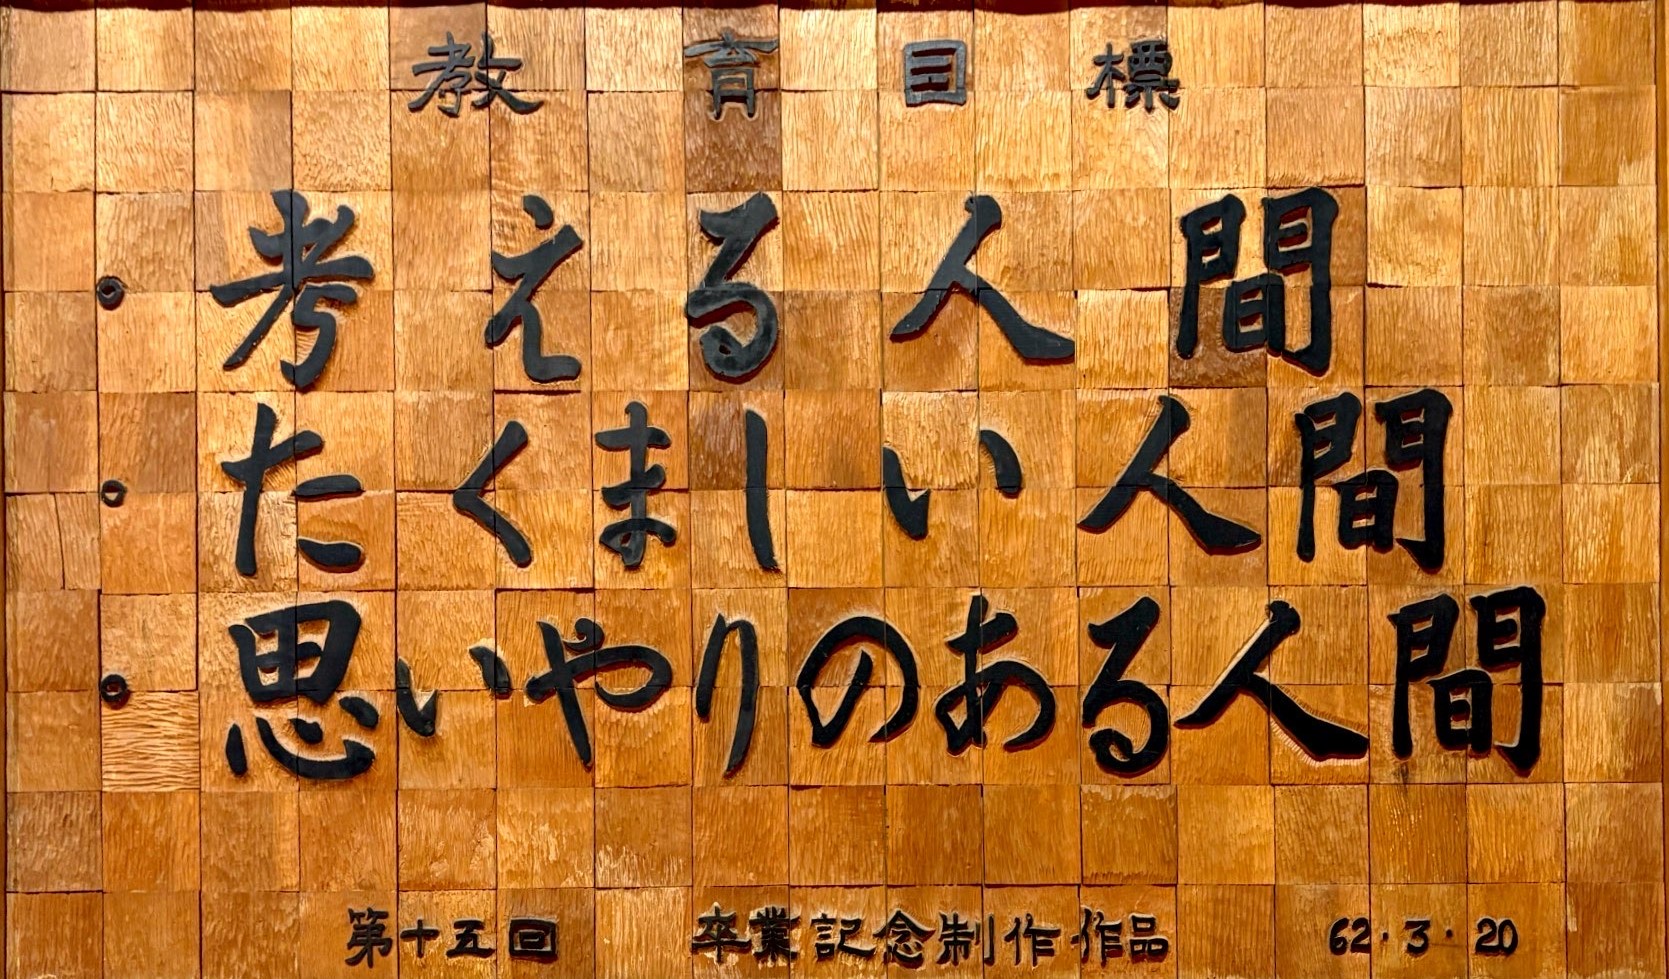 教育目標
・考える人間
・たくましい人間
・思いやりのある人間
第十五回 卒業記念制作作品 62・3・20